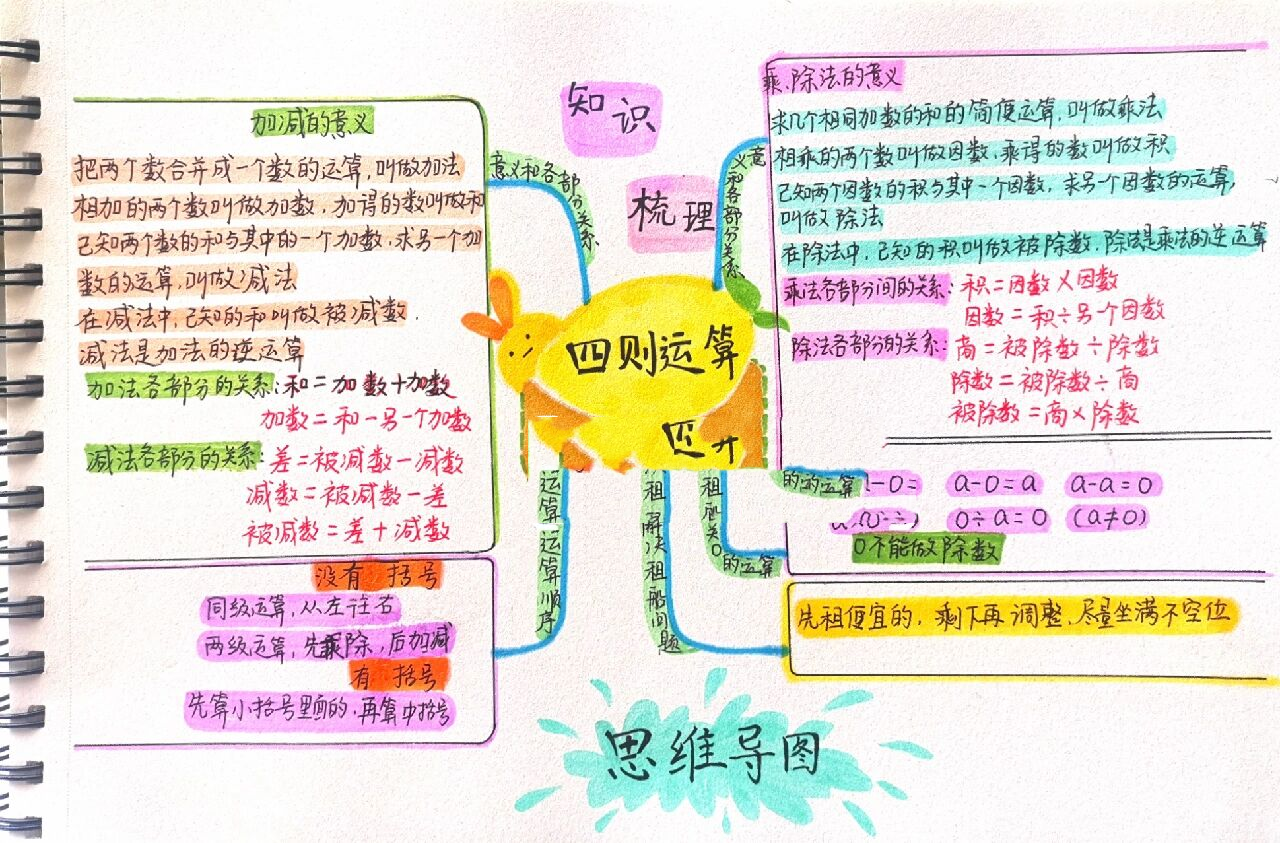 知识
梳理
四则运算
加减的意义
把两个数合并成一个数的运算，叫做加法
相加的两个数叫做加数，加得的数叫做和
已知两个数的和与其中的一个加数，求另一个加
数的运算，叫做减法
在减法中，已知的和叫做被减数.
减法是加法的逆运算
加法各部分的关系：和＝加数＋加数
加数＝和－另一个加数
减法各部分的关系：差＝被减数－减数
减数＝被减数－差
被减数＝差＋减数
意义和各部分关系
乘、除法的意义
求几个相同加数的和的简便运算，叫做乘法
相乘的两个数叫做因数，乘得的数叫做积
已知两个因数的积与其中一个因数，求另一个因数的运算，
叫做除法
在除法中，已知的积叫做被除数.除法是乘法的逆运算
乘法各部分间的关系：积＝因数×因数
因数＝积÷另一个因数
除法各部分的关系：商＝被除数÷除数
除数＝被除数÷商
被除数＝商×除数
意义和各部分关系
没有 括号
同级运算，从左往右
两级运算，先乘除，后加减
有 括号
先算小括号里面的，再算中括号
运算 运算顺序
租 解决租船问题
的运算
的的运算
-0＝ a-0＝a a-a＝0
0÷a＝0 (a≠0)
0不能做除数
先租便宜的，剩下再调整，尽量坐满不空位
思维导图